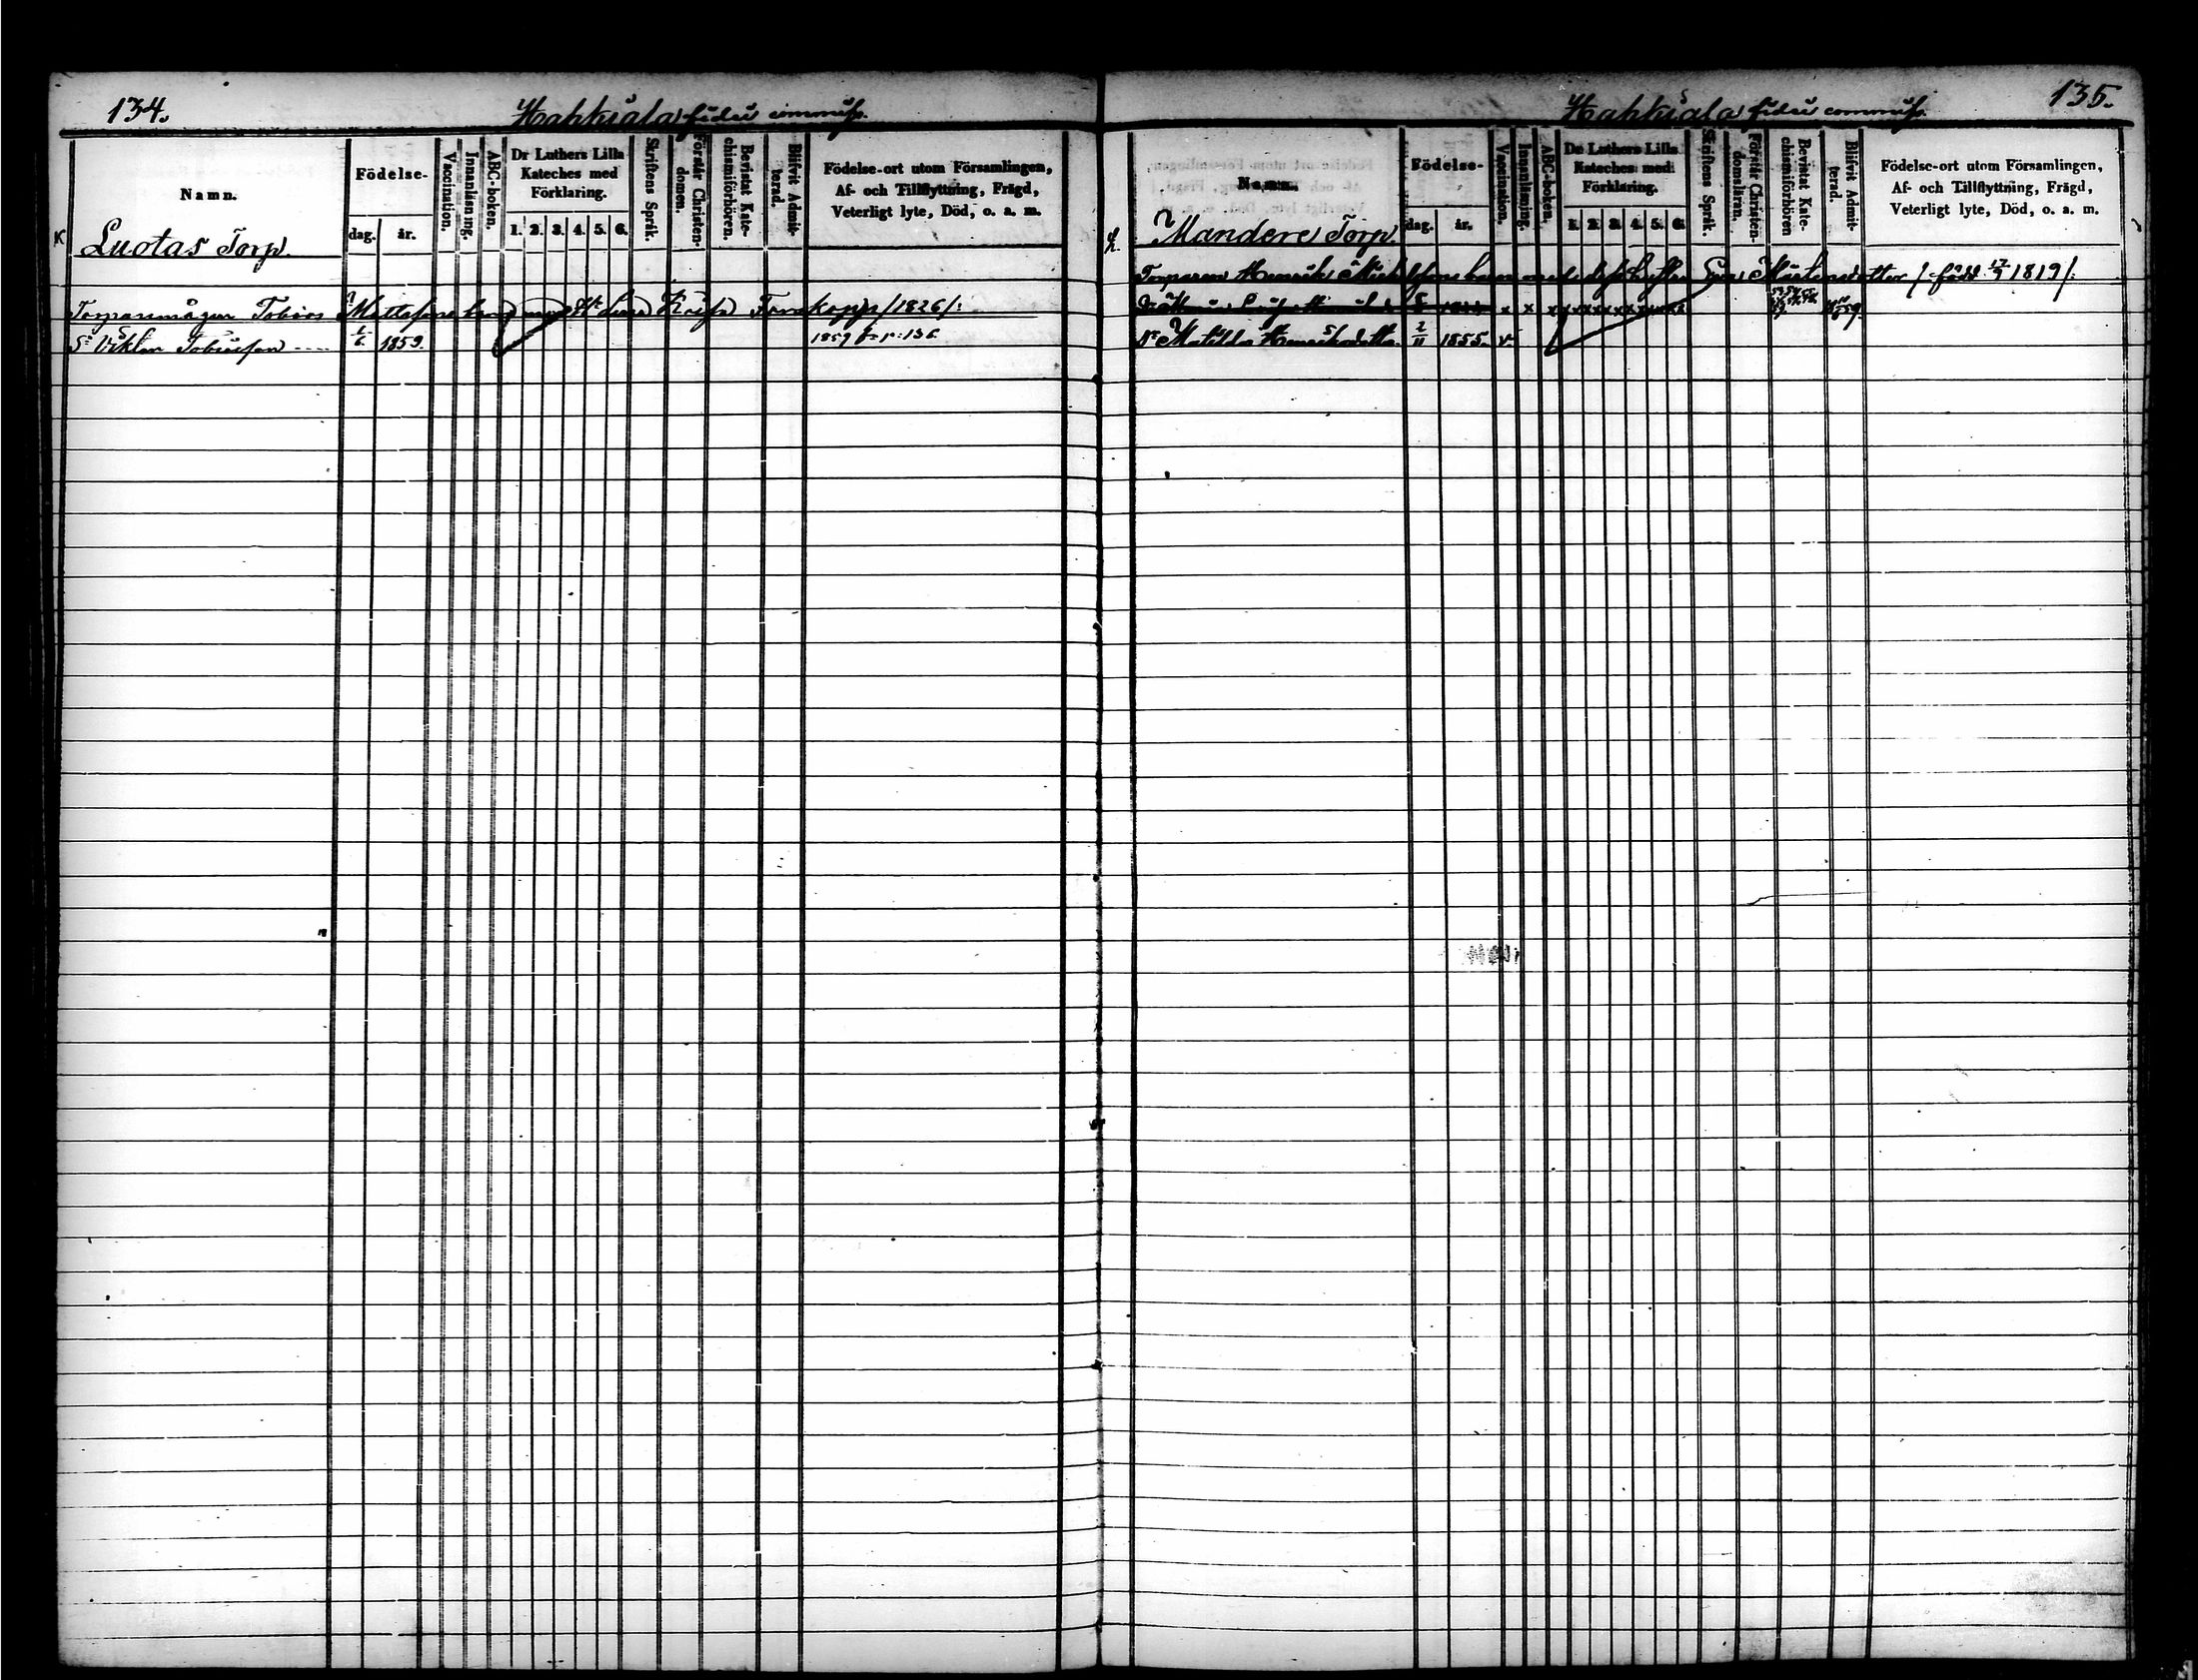 134.
Hahkiala fidei commiss.
Namn.
Födelse-
dag.
år.
Vaccination.
Innanläsning.
ABC-boken.
Dr Luthers Lilla
Kateches med
Förklaring.
1. 2. 3. 4. 5. 6.
Skriftens Språk.
Förstår Christen-
domen.
Bevistat Kate-
chismiförhören.
Blifvit Admit-
terad.
Födelse-ort utom Församlingen,
Af- och Tillflyttning, Frägd,
Veterligt lyte, Död, o. a. m.
K
Luotas Torp.
Torparemågen Tobias Mattsons barn med Lena /1826/:
Sn Viktor Tobiasson 1/6 1859. 1859 p. 136
135.
Hahkiala fidei commiss.
Namn.
Födelse-
dag.
år.
Vaccination.
Innanläsning.
ABC-boken.
Dr Luthers Lilla
Kateches med
Förklaring.
1. 2. 3. 4. 5. 6.
Skriftens Språk.
Förstår Christen-
domsläran.
Bevistat Kate-
chismiförhören
Blifvit Admit-
terad.
Födelse-ort utom Församlingen,
Af- och Tillflyttning, Frägd,
Veterligt lyte, Död, o. a. m.
Mandere Torp.
Torparen Henrik barn med Eva /: född 17/9 1819/:
x x x x x x x x x
Dr Matilda Henriksdotter 2/11 1855. v